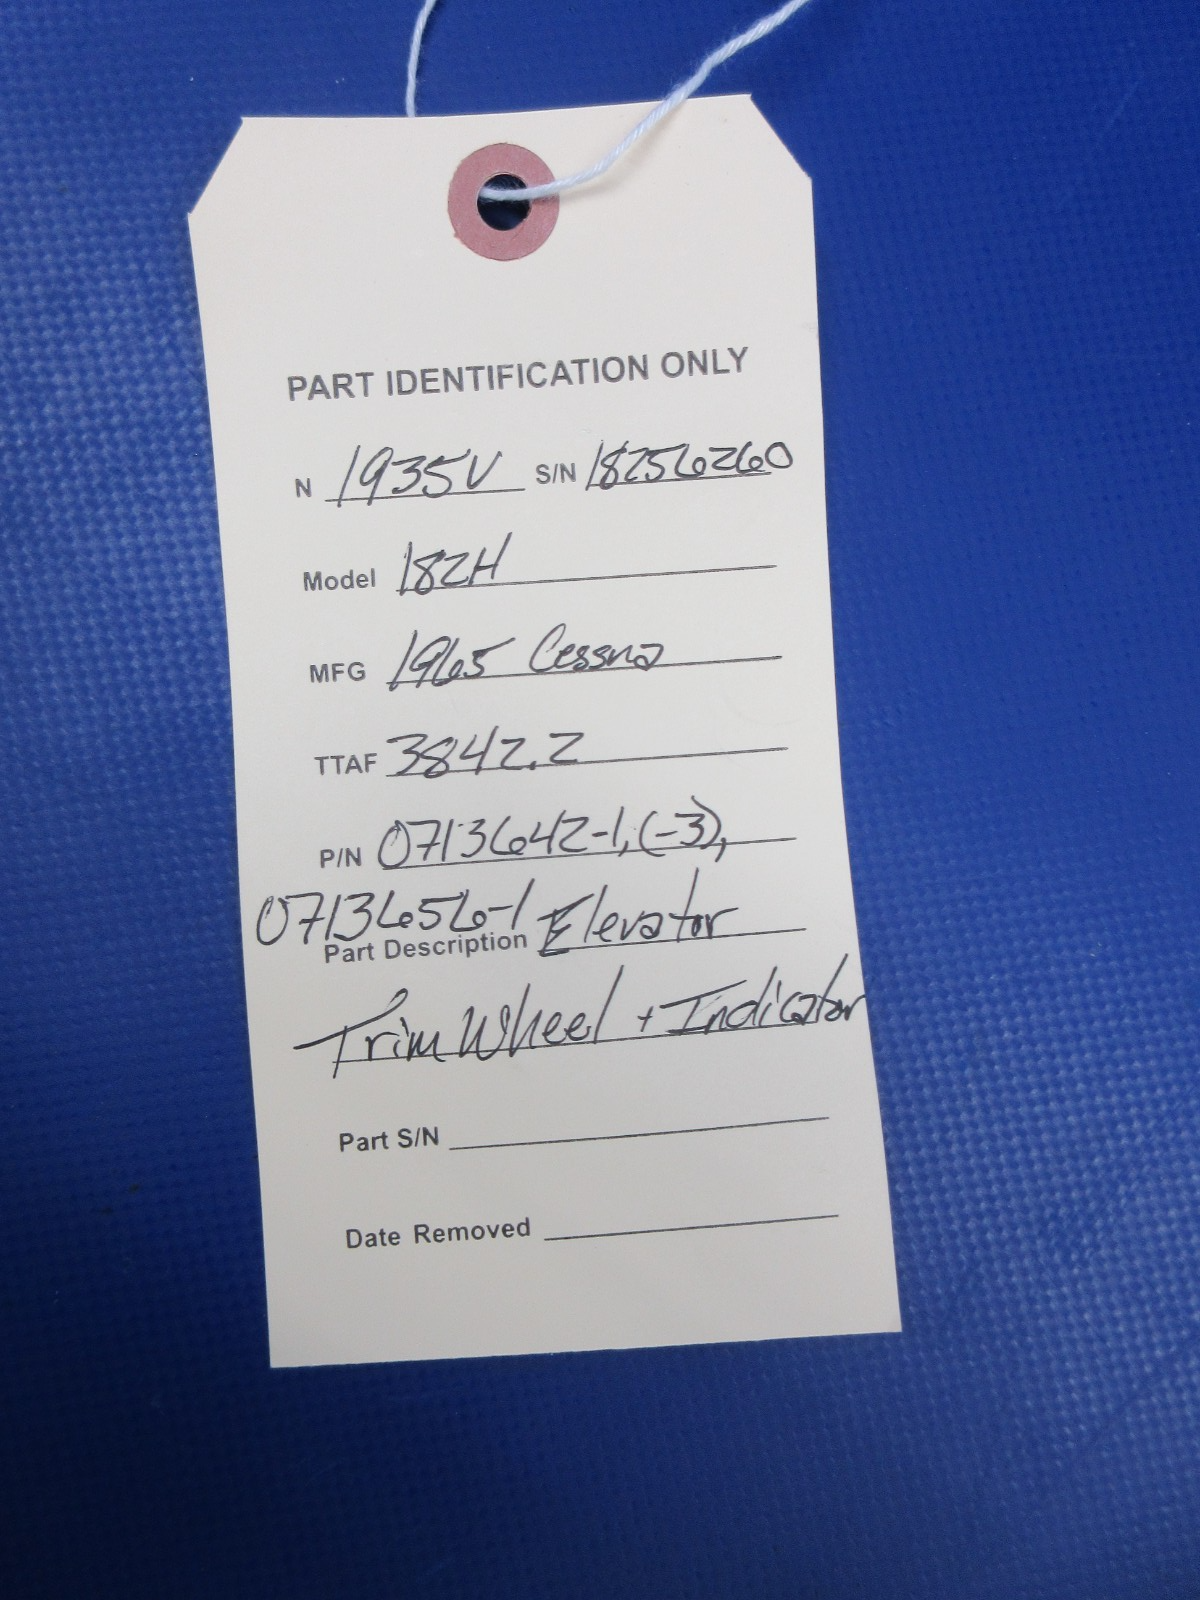 PART IDENTIFICATION ONLY
N 1935V S/N 18256260
Model 182H
MFG 1965 Cessna
TTAF 3842.2
P/N 0713642-1, (-3),
0713656-1
Part Description Elevator
Trim Wheel + Indicator
Part S/N
Date Removed